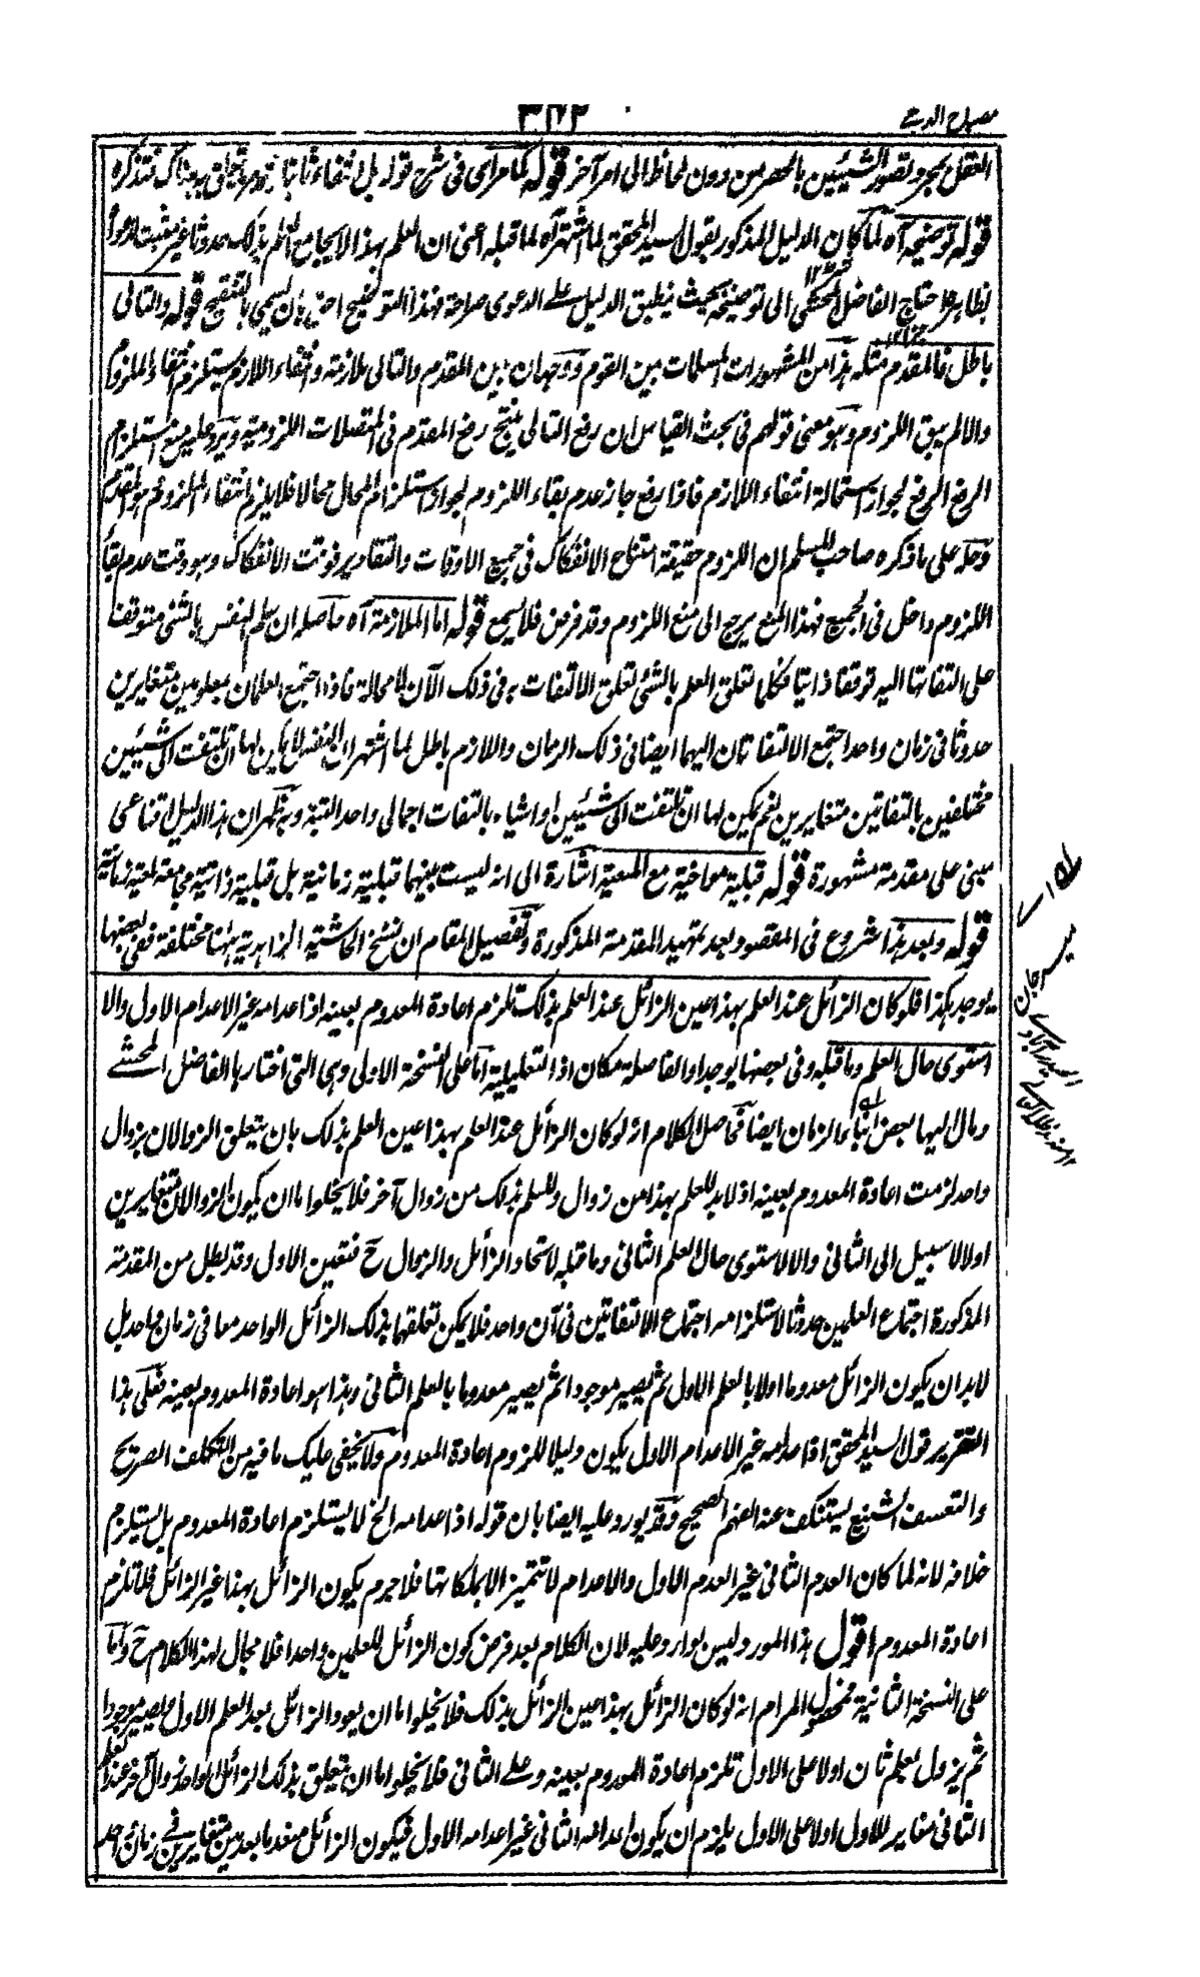 مصباح الدجى
العقل بمجرد تصور الشيئين بالحصر من دون لحاظ الى امر آخر قوله كما مر اى فى شرح قوله بل انتفاء ثابتا فتذكره
قوله توضيحه آه لما كان الدليل المذكور بقول السيد المحقق لما اشتهر آه لما قبله اعنى ان العلم بهذا لا يجامع العلم بذلك حدوثا غير مثبت للدعوى
بظاهره احتاج الفاضل المحشى الى توضيحه بحيث ينطبق الدليل على الدعوى صراحة فهذا التوضيح احق بان يسمى بالتنقيح قوله والتالى
باطل فالمقدم مثله هذا من المشهورات المسلمات بين القوم ووجه ان بين المقدم والتالى ملازمة وانتفاء اللازم يستلزم انتفاء الملزوم
والا لم يبق اللزوم وهو معنى قولهم فى بحث القياس ان رفع التالى ينتج رفع المقدم فى المتصلات اللزومية ويرد عليه منع استلزام
الرفع الرفع لجواز استحالة انتفاء اللازم فاذا رفع جاز عدم بقاء اللزوم لجواز استلزام المحال محالا فلا يلزم انتفاء الملزوم هو المقدم
وحله على ما ذكره صاحب السلم ان اللزوم حقيقة امتناع الانفكاك فى جميع الاوقات والتقادير فوقت الانفكاك وهو وقت عدم بقاء
اللزوم داخل فى الجميع فهذا المنع يرجع الى منع اللزوم وقد فرض فلا يسمع قوله اما الملازمة آه حاصله ان علم النفس بالشئ متوقف
على التفاتها اليه توقفا ذاتيا فكلما تعلق العلم بالشئ تعلق الالتفات به فى ذلك الآن لا محالة فاذا اجتمع العلمان بمعلومين متغايرين
حدوثا فى زمان واحد اجتمع الالتفاتان اليهما ايضا فى ذلك الزمان واللازم باطل لما اشتهر ان النفس لا يمكن لها ان تلتفت الى شيئين
مختلفين بالتفاتين متغايرين نعم يمكن لها ان تلتفت الى شيئين او اشياء بالتفات اجمالى واحد البتة وبه ظهر ان هذا الدليل اقناعى
مبنى على مقدمة مشهورة قوله قبلية مواخية مع المعية اشارة الى انه ليست بينهما قبلية زمانية بل قبلية ذاتية مجامعة لمعية زمانية
قوله وبعد هذا شروع فى المقصود بعد تمهيد المقدمة المذكورة وتفصيل المقام ان نسخ الحاشية الزاهدية ههنا مختلفة ففى بعضها
يوجد هكذا فلو كان الزائل عند العلم بهذا عين الزائل عند العلم بذلك تلزم اعادة المعدوم بعينه اذ اعدامه غير الاعدام الاول والا
استوى حال العلم وما قبله وفى بعضها يوجد او الفاصلة مكان اذ التعليلية اما على النسخة الاولى وهى التى اختارها الفاضل المحشى
ومال اليها بعض ابناء الزمان ايضا فحاصل الكلام انه لو كان الزائل عند العلم بهذا عين العلم بذلك بان يتعلق الزوالان بزوال
واحد لزمت اعادة المعدوم بعينه اذ لا بد للعلم بهذا من زوال وللعلم بذلك من زوال آخر فلا يخلوا ما ان يكون الزوالان متغايرين
اولا لا سبيل الى الثانى والا لاستوى حال العلم الثانى وما قبله لاتحاد الزائل والزوال ح فتعين الاول وقد بطل من المقدمة
المذكورة اجتماع العلمين حدوثا لاستلزامه اجتماع الالتفاتين فى آن واحد فلا يمكن تعلقهما بذلك الزائل الواحد معا فى زمان واحد بل
لا بد ان يكون الزائل معدوما اولا بالعلم الاول ثم يصير موجودا ثم يصير معدوما بالعلم الثانى وهذا هو اعادة المعدوم بعينه فعلى هذا
التقرير قول السيد المحقق اذ اعدامه غير الاعدام الاول يكون دليلا للزوم اعادة المعدوم ولا يخفى عليك ما فيه من التكلف الصريح
والتعسف الشنيع يستنكف عنه الفهم الصحيح وقد يورد عليه ايضا بان قوله اذ اعدامه الخ لا يستلزم اعادة المعدوم بل يستلزم
خلافه لانه لما كان العدم الثانى غير العدم الاول والاعدام لا تتميز الا بملكاتها فلا جرم يكون الزائل بهذا غير الزائل فلا تلزم
اعادة المعدوم اقول هذا المورد ليس بوارد عليه لان الكلام بعد فرض كون الزائل للعلمين واحدا فلا مجال لهذا الكلام ح واما
على النسخة الثانية فمحصول المرام انه لو كان الزائل بهذا عين الزائل بذلك فلا يخلوا ما ان يعود الزائل بعد العلم الاول ويصير موجودا
ثم يزول بعلم ثان اولا على الاول تلزم اعادة المعدوم بعينه وعلى الثانى فلا يخلوا ما ان يتعلق بذلك الزائل الواحد زوال آخر عند العلم
الثانى مغاير للاول اولا على الاول يلزم ان يكون اعدامه الثانى غير اعدامه الاول فيكون الزائل منعدما بعدمين متغايرين فى زمان واحد